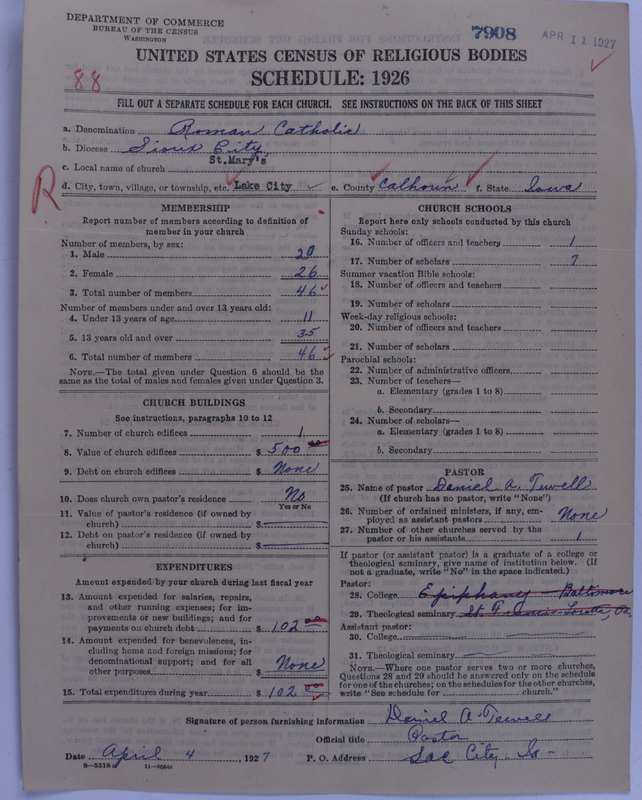 DEPARTMENT OF COMMERCE
BUREAU OF THE CENSUS
WASHINGTON
7908
APR 11 1927
88
UNITED STATES CENSUS OF RELIGIOUS BODIES
SCHEDULE: 1926
FILL OUT A SEPARATE SCHEDULE FOR EACH CHURCH. SEE INSTRUCTIONS ON THE BACK OF THIS SHEET
a. Denomination Roman Catholic
b. Diocese Sioux City
c. Local name of church St.Mary's
R
d. City, town, village, or township, etc. Lake City e. County Calhoun f. State Iowa
MEMBERSHIP
Report number of members according to definition of
member in your church
Number of members, by sex:
1. Male 20
2. Female 26
3. Total number of members 46
Number of members under and over 13 years old:
4. Under 13 years of age 11
5. 13 years old and over 35
6. Total number of members 46
NOTE.—The total given under Question 6 should be the
same as the total of males and females given under Question 3.
CHURCH BUILDINGS
See instructions, paragraphs 10 to 12
7. Number of church edifices 1
8. Value of church edifices $ 500 00
9. Debt on church edifices $ None
10. Does church own pastor's residence No
Yes or No
11. Value of pastor's residence (if owned by
church) $
12. Debt on pastor's residence (if owned by
church) $
EXPENDITURES
Amount expended by your church during last fiscal year
13. Amount expended for salaries, repairs,
and other running expenses; for im-
provements or new buildings; and for
payments on church debt $ 102 00
14. Amount expended for benevolences, in-
cluding home and foreign missions; for
denominational support; and for all
other purposes $ None
15. Total expenditures during year $ 102 00
CHURCH SCHOOLS
Report here only schools conducted by this church
Sunday schools:
16. Number of officers and teachers 1
17. Number of scholars 7
Summer vacation Bible schools:
18. Number of officers and teachers
19. Number of scholars
Week-day religious schools:
20. Number of officers and teachers
21. Number of scholars
Parochial schools:
22. Number of administrative officers
23. Number of teachers—
a. Elementary (grades 1 to 8)
b. Secondary
24. Number of scholars—
a. Elementary (grades 1 to 8)
b. Secondary
PASTOR
25. Name of pastor Daniel A. Tewell
(If church has no pastor, write "None")
26. Number of ordained ministers, if any, em-
ployed as assistant pastors None
27. Number of other churches served by the
pastor or his assistants 1
If pastor (or assistant pastor) is a graduate of a college or
theological seminary, give name of institution below. (If
not a graduate, write "No" in the space indicated.)
Pastor:
28. College Epiphany - Baltimore
29. Theological seminary St. Francis Loretto, Pa.
Assistant pastor:
30. College
31. Theological seminary
NOTE.—Where one pastor serves two or more churches,
Questions 28 and 29 should be answered only on the schedule
for one of the churches; on the schedules for the other churches,
write "See schedule for church."
Signature of person furnishing information Daniel A. Tewell
Official title Pastor
Date April 4, 1927 P. O. Address Sac City, Ia-
8—5319a 11—9064